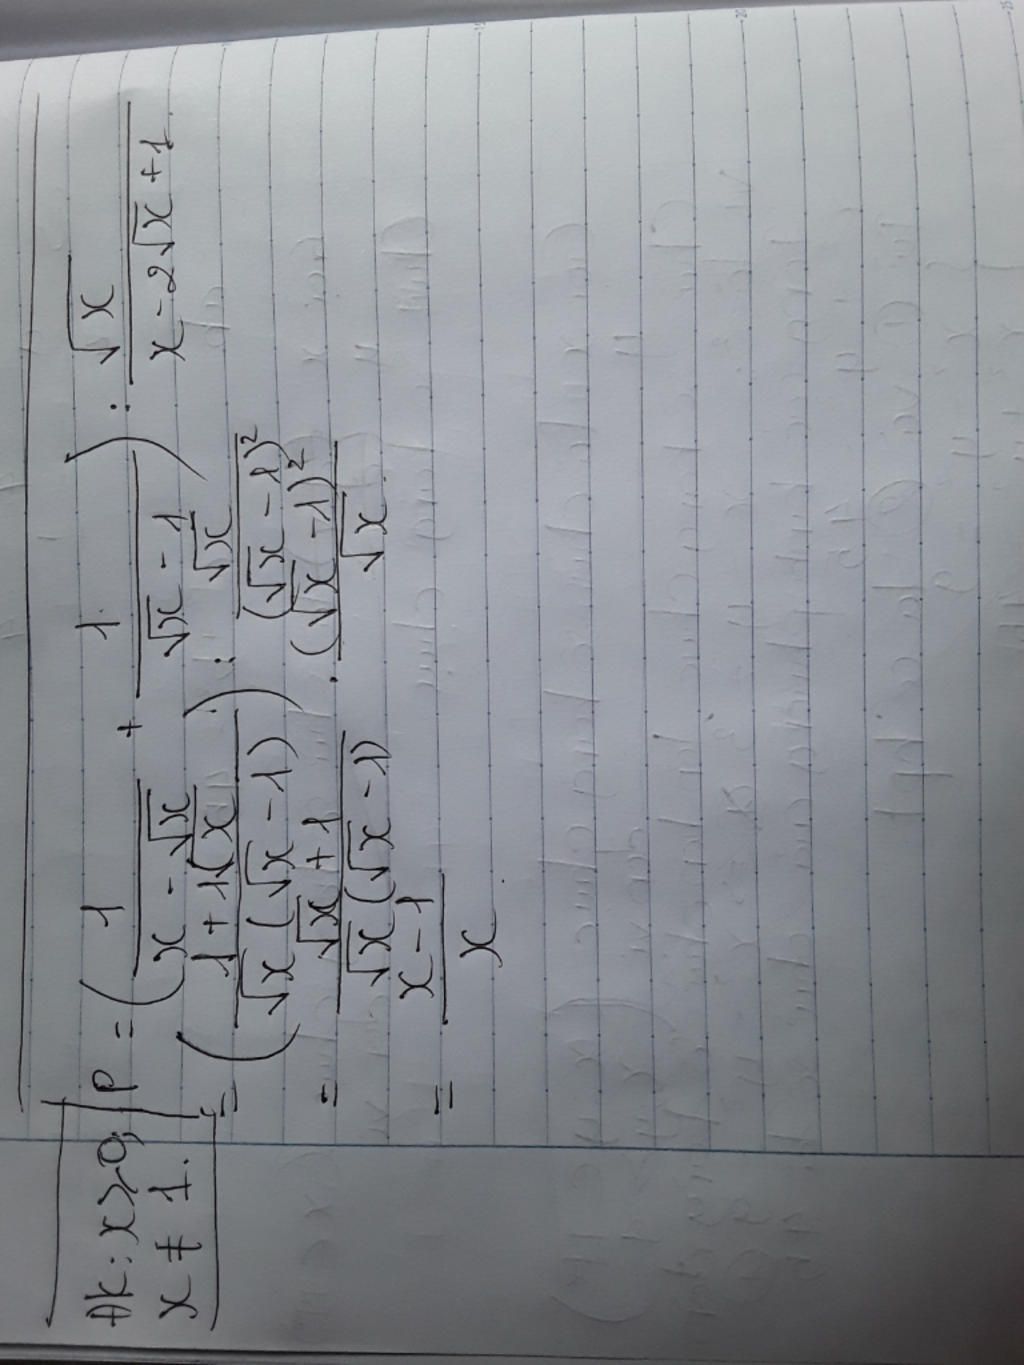 ĐK: x ≥ 0;
x ≠ 1.
P = ( 1/(x - √x) + 1/(√x - 1) ) : √x/(x - 2√x + 1)
= ( (1 + 1√x)/(√x(√x - 1)) ) : √x/(√x - 1)²
= (√x + 1)/(√x(√x - 1)) . (√x - 1)²/√x
= (x - 1)/x .